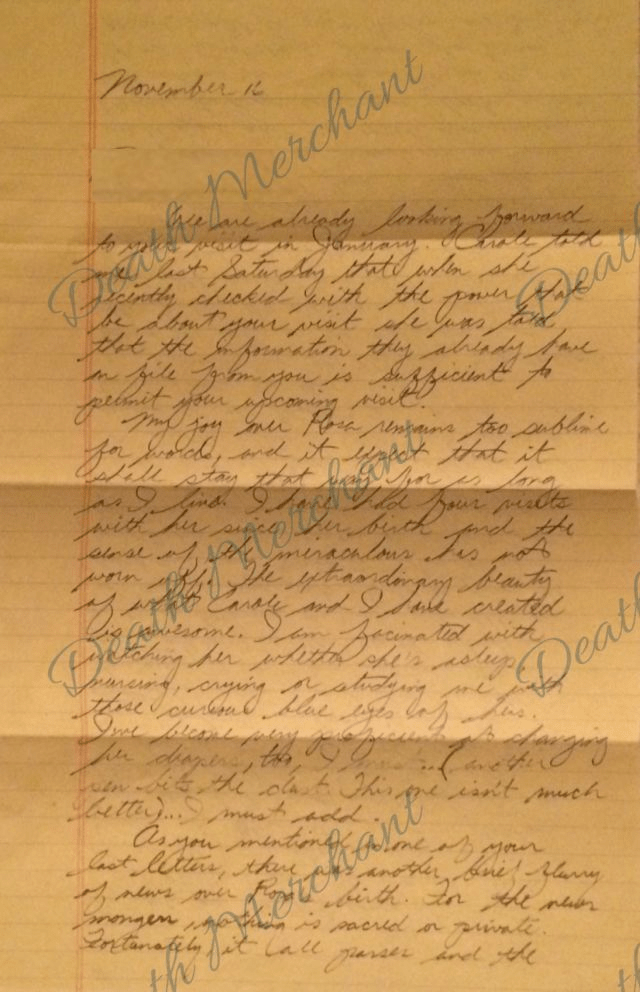 November 16
We are already looking forward
to your visit in January. Carole told
me last Saturday that when she
recently checked with the power that
be about your visit she was told
that the information they already have
on file from you is sufficient to
permit your upcoming visit.
My joy over Rosa remains too sublime
for words, and it expect that it
shall stay that way for as long
as I live. I have had four visits
with her since her birth and the
sense of the miraculous has not
worn off. The extraordinary beauty
of what Carole and I have created
is awesome. I am facinated with
watching her whether she's asleep,
nursing, crying or studying me with
those curious blue eyes of hers.
I've become very proficient at changing
her diapers, too, I must... (another
pen bits the dust. This one isn't much
better)... I must add.
As you mentioned in one of your
last letters, there was another, brief flurry
of news over Rosa's birth. For the news
mongers nothing is sacred or private.
Fortunately, it all passes and the
Death Merchant
Death Merchant
Death Merchant
Death Merchant
Death
Death